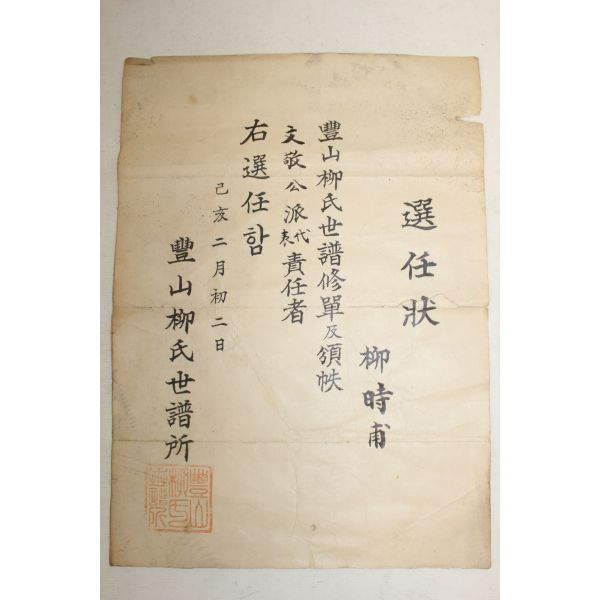 選任狀
柳時甫
豐山柳氏世譜修單及頒帙
文敬公派代表責任者
右選任함
己亥二月初二日
豐山柳氏世譜所
豐山柳氏世譜所